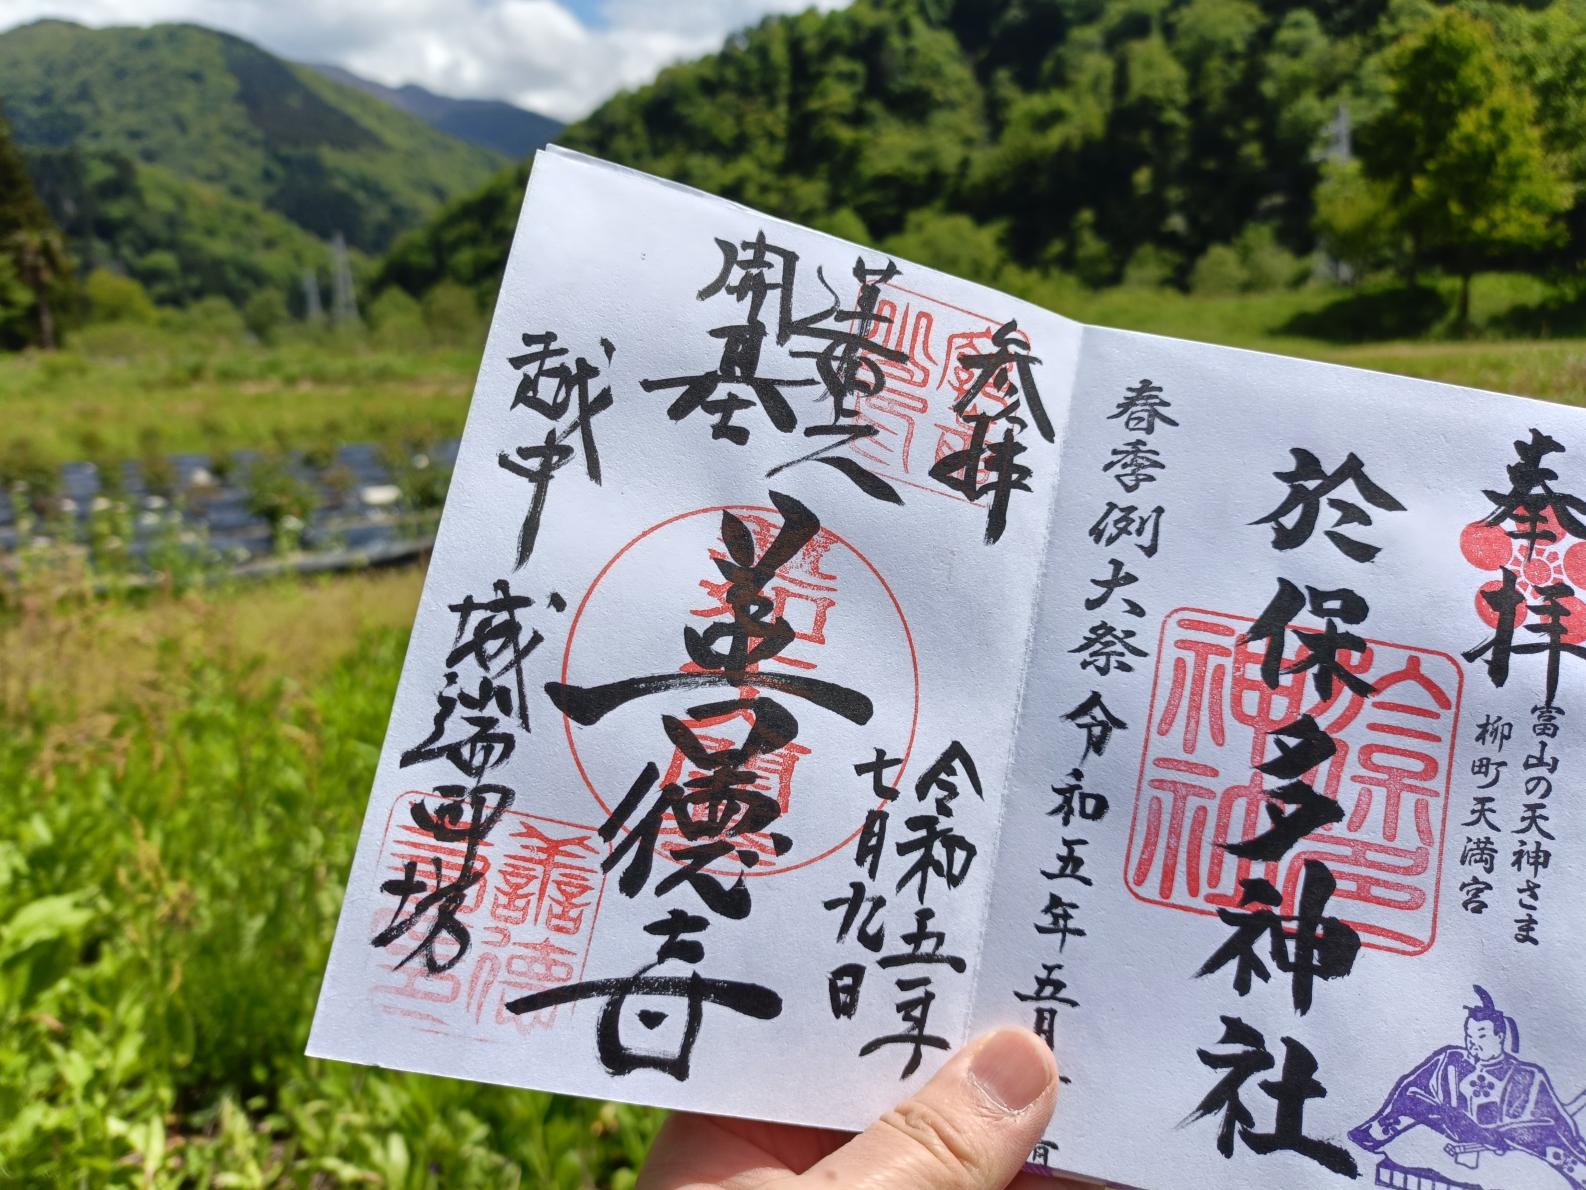 奉拝
富山の天神さま
柳町天満宮
於保多神社
春季例大祭 令和五年五月
参拝
蓮如上人
開基
善徳寺
令和五年
七月九日
越中
城端